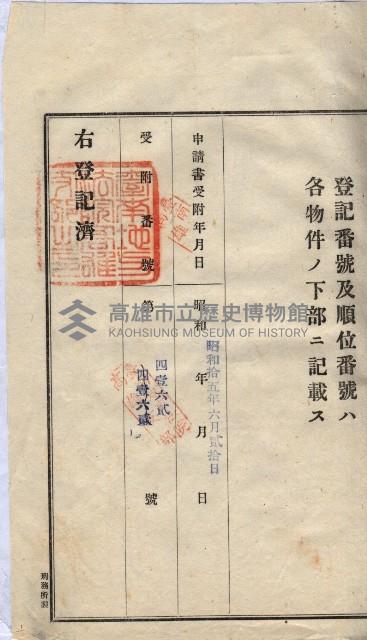 登記番號及順位番號ハ
各物件ノ下部ニ記載ス
申請書受附年月日
昭和 年 月 日
昭和拾五年六月貳拾日
受附番號
第 號
四壹六貳
四壹六貳
右登記濟
刑務所製
高雄市立歷史博物館
KAOHSIUNG MUSEUM OF HISTORY